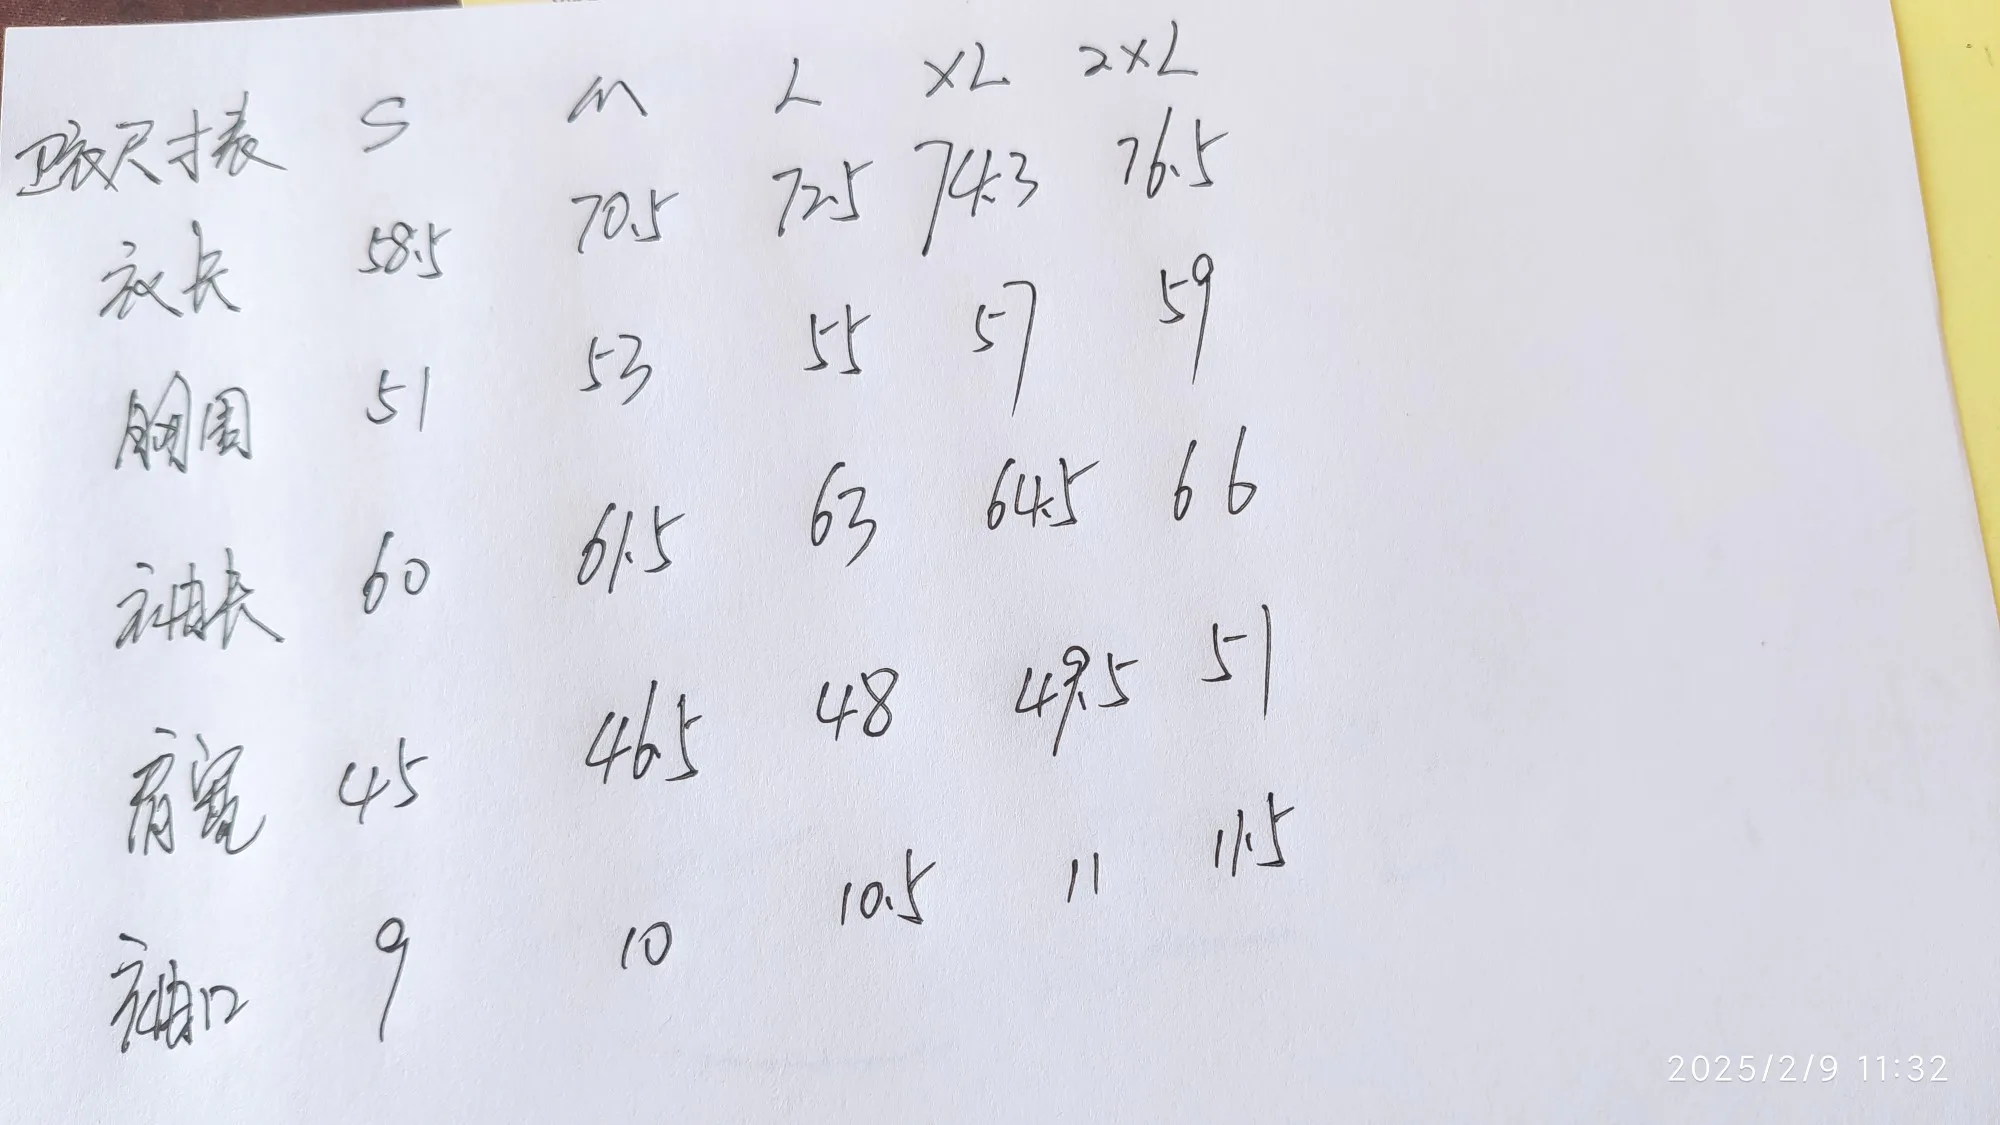 卫衣尺寸表 S M L XL 2XL
衣长 58.5 70.5 72.5 74.3 76.5
胸围 51 53 55 57 59
袖长 60 61.5 63 64.5 66
肩宽 45 46.5 48 49.5 51
袖口 9 10 10.5 11 11.5
2025/2/9 11:32